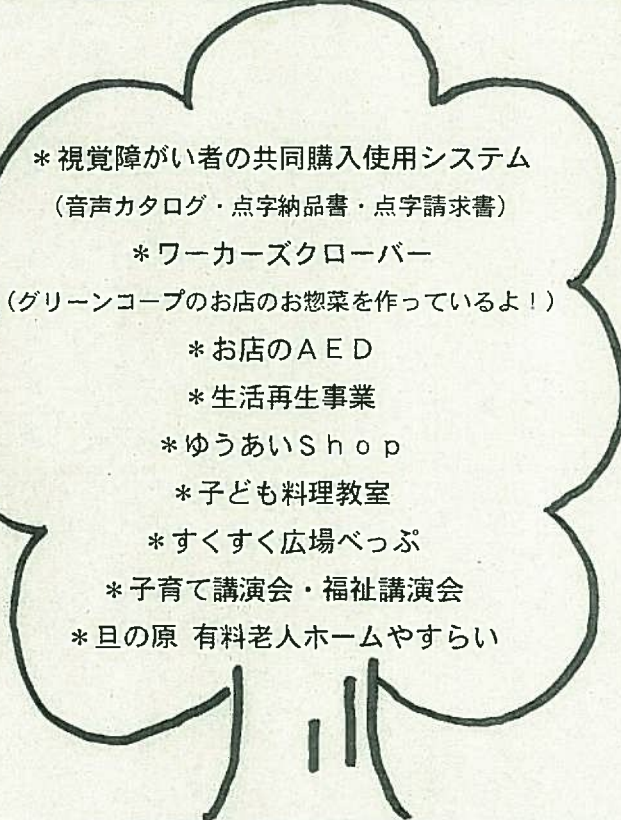 ＊視覚障がい者の共同購入使用システム
（音声カタログ・点字納品書・点字請求書）
＊ワーカーズクローバー
（グリーンコープのお店のお惣菜を作っているよ！）
＊お店のＡＥＤ
＊生活再生事業
＊ゆうあいＳｈｏｐ
＊子ども料理教室
＊すくすく広場べっぷ
＊子育て講演会・福祉講演会
＊旦の原 有料老人ホームやすらい